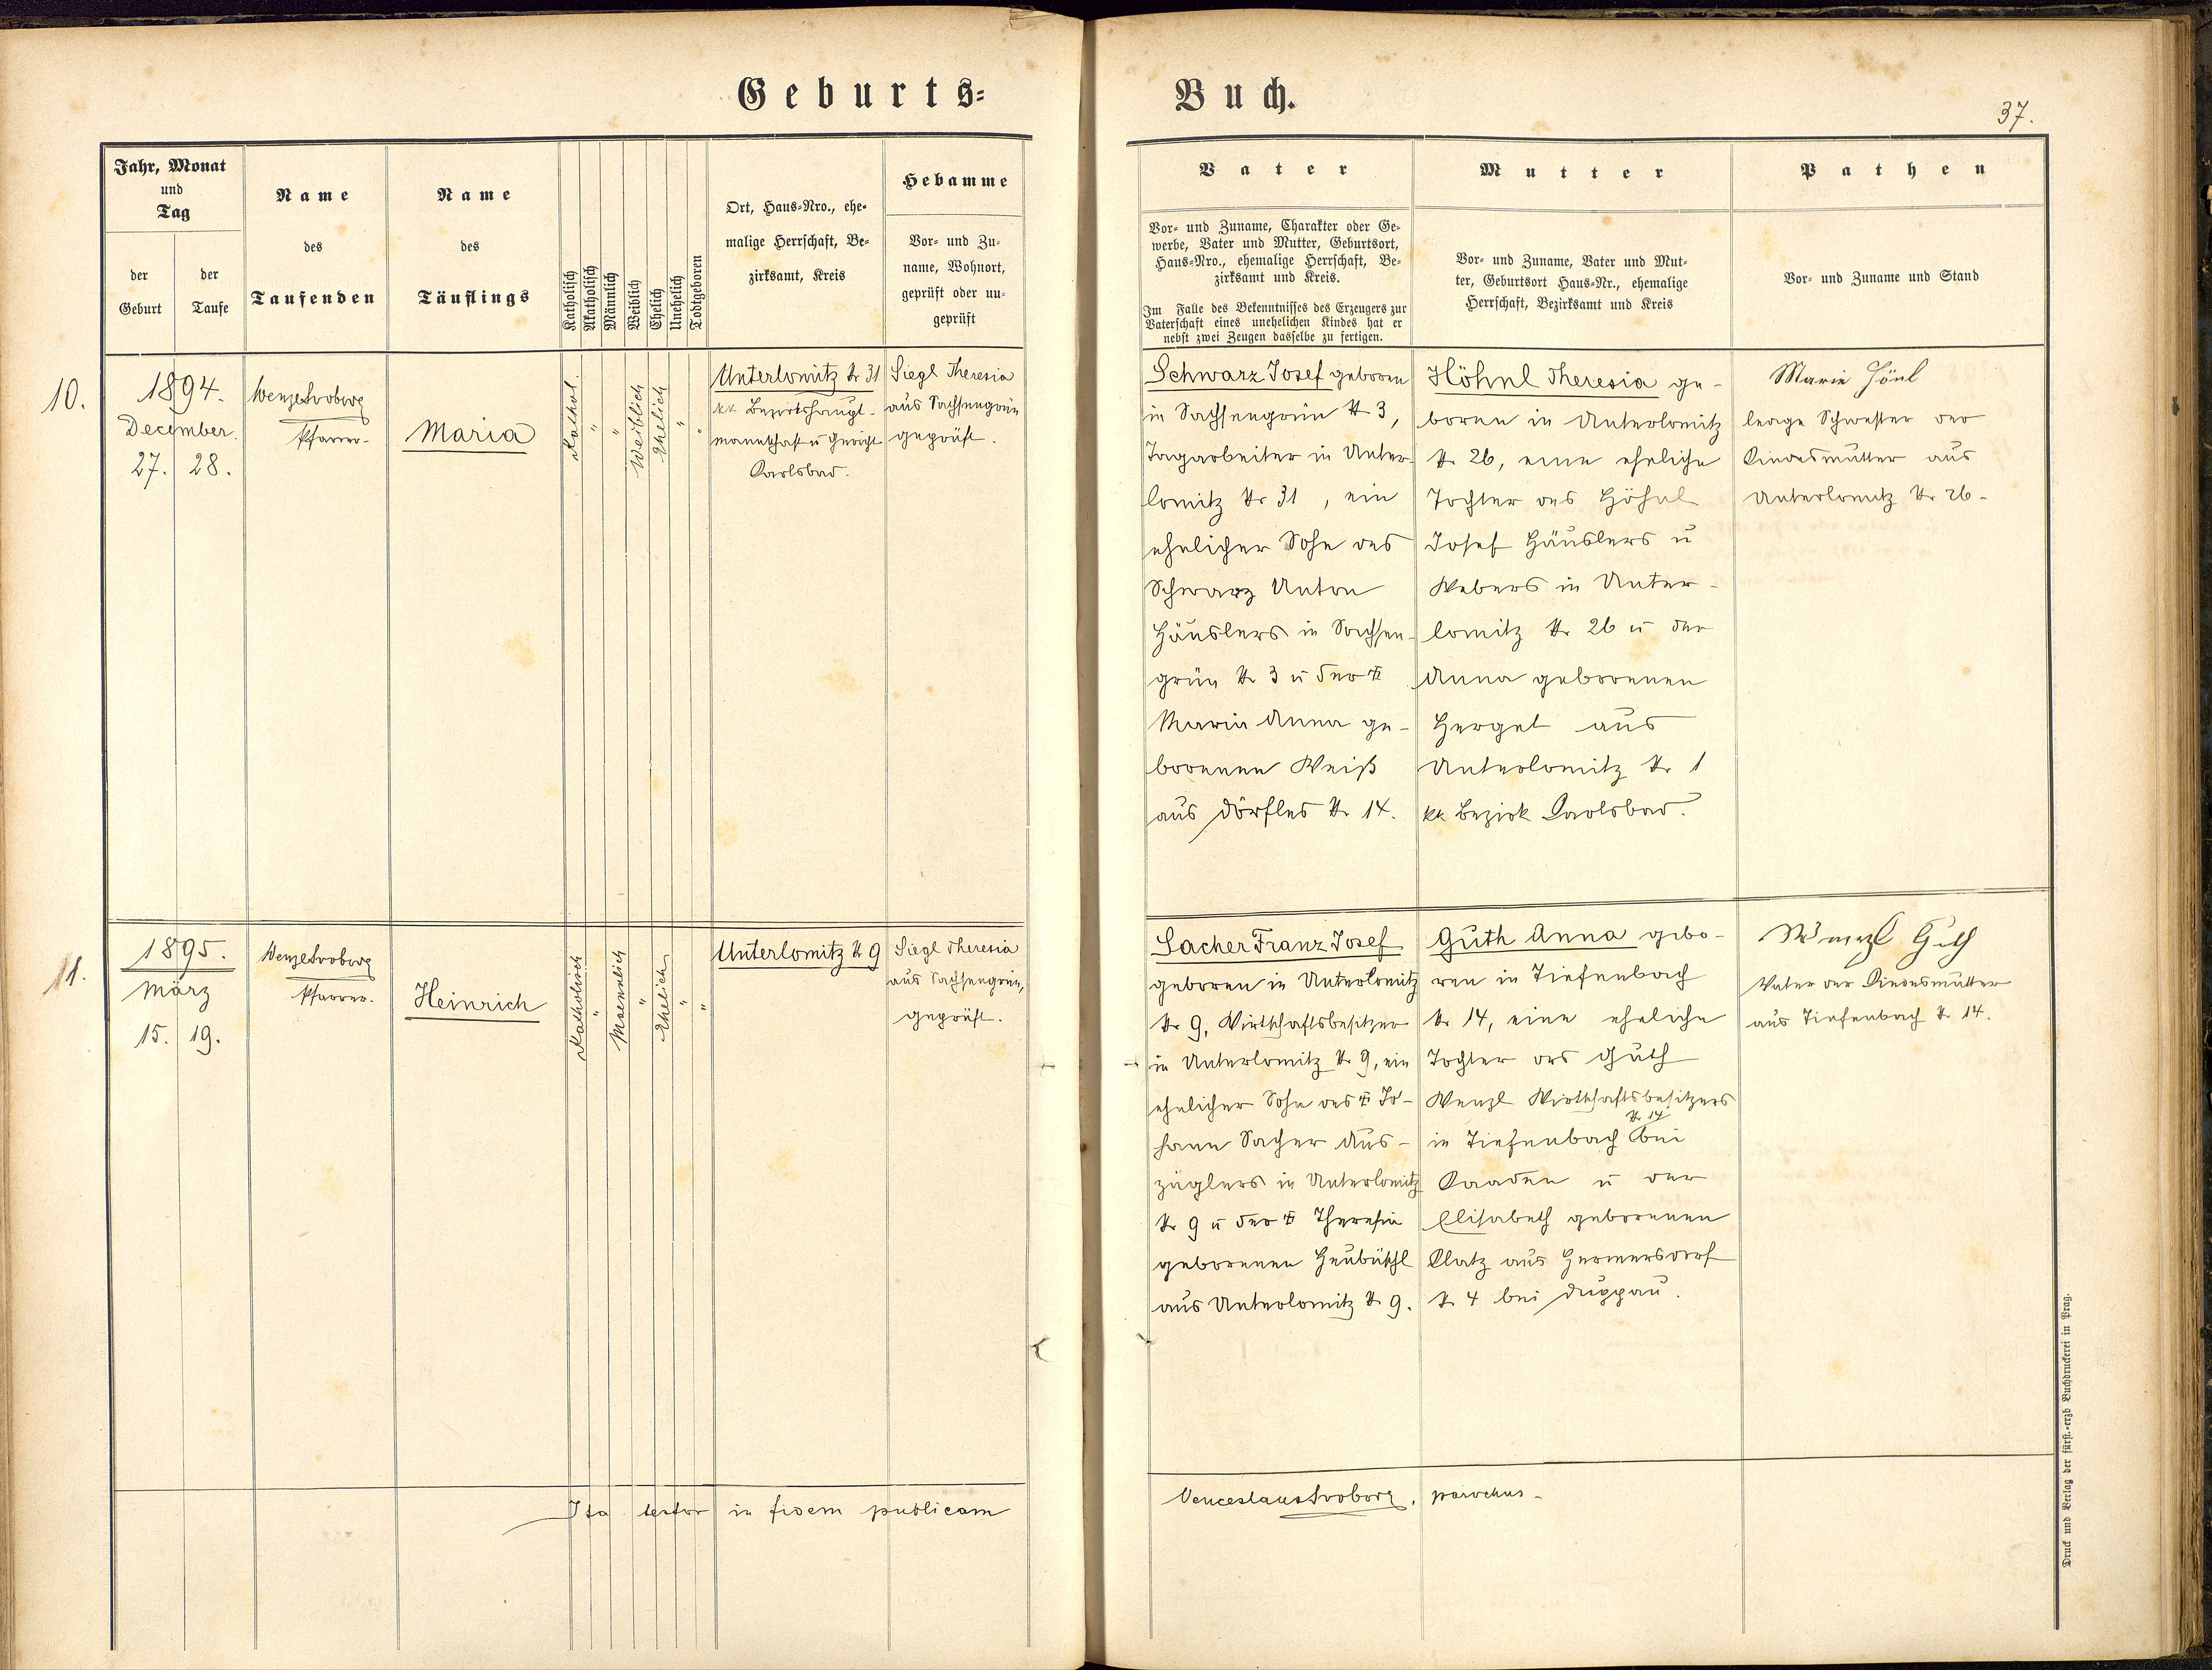 Geburts=
Buch.
37.
Jahr, Monat
und
Tag
der
Geburt
der
Taufe
Name
des
Taufenden
Name
des
Täuflings
Katholisch
Akatholisch
Männlich
Weiblich
Ehelich
Unehelich
Todtgeboren
Ort, Haus=Nro., ehe=
malige Herrschaft, Be=
zirksamt, Kreis
Hebamme
Vor= und Zu=
name, Wohnort,
geprüft oder un=
geprüft
Vater
Vor= und Zuname, Charakter oder Ge=
werbe, Vater und Mutter, Geburtsort,
Haus=Nro., ehemalige Herrschaft, Be=
zirksamt und Kreis.
Im Falle des Bekenntnisses des Erzeugers zur
Vaterschaft eines unehelichen Kindes hat er
nebst zwei Zeugen dasselbe zu fertigen.
Mutter
Vor= und Zuname, Vater und Mut=
ter, Geburtsort Haus=Nr., ehemalige
Herrschaft, Bezirksamt und Kreis
Pathen
Vor= und Zuname und Stand
10.
1894.
December.
27. 28.
Wenzel Svoboda
Pfarrer.
Maria
Kathol.
"
"
Weiblich
Ehelich
"
"
Unterlomitz Nr 31
kk Bezirkshaupt-
mannschaft u Gericht
Karlsbad.
Siegl Theresia
aus Sachsengrün
geprüft.
Schwarz Josef geboren
in Sachsengrün Nr 3,
Tagarbeiter in Unter-
lomitz Nr 31, ein
ehelicher Sohn des
Schwarz Anton
Häuslers in Sachsen-
grün Nr 3 u der ‡
Maria Anna ge-
borenen Weiß
aus Dörfles Nr 14.
Höhnl Theresia ge-
boren in Unterlomitz
Nr 26, eine eheliche
Tochter des Höhnl
Josef Häuslers u
Webers in Unter-
lomitz Nr 26 u der
Anna geborenen
Hergel aus
Unterlomitz Nr 1
kk Bezirk Karlsbad.
Marie Hönl
ledige Schwester der
Kindesmutter aus
Unterlomitz Nr 26-
11.
1895.
März
15. 19.
Wenzel Svoboda
Pfarrer.
Heinrich
Katholisch
"
Maennlich
"
Ehelich
"
"
Unterlomitz Nr 9
Siegl Theresia
aus Sachsengrün,
geprüft.
Sacher Franz Josef
geboren in Unterlomitz
Nr 9, Wirtschaftsbesitzer
in Unterlomitz Nr 9, ein
ehelicher Sohn des ‡ Jo-
hann Sacher Aus-
züglers in Unterlomitz
Nr 9 u der ‡ Theresia
geborenen Heubüschl
aus Unterlomitz Nr 9.
Guth Anna gebo-
ren in Tiefenbach
Nr 14, eine eheliche
Tochter des Guth
Wenzl Wirtschaftsbesitzers
Nr 14
in Tiefenbach bei
Kaaden u der
Elisabeth geborenen
Klatz aus Hermersdorf
Nr 4 bei Duppau.
Wenzl Guth
Vater der Kindesmutter
aus Tiefenbach Nr 14.
Ita testor in fidem publicam
Venceslaus Svoboda, parochus-
Druck und Verlag der fürst.=erzb Buchdruckerei in Prag.